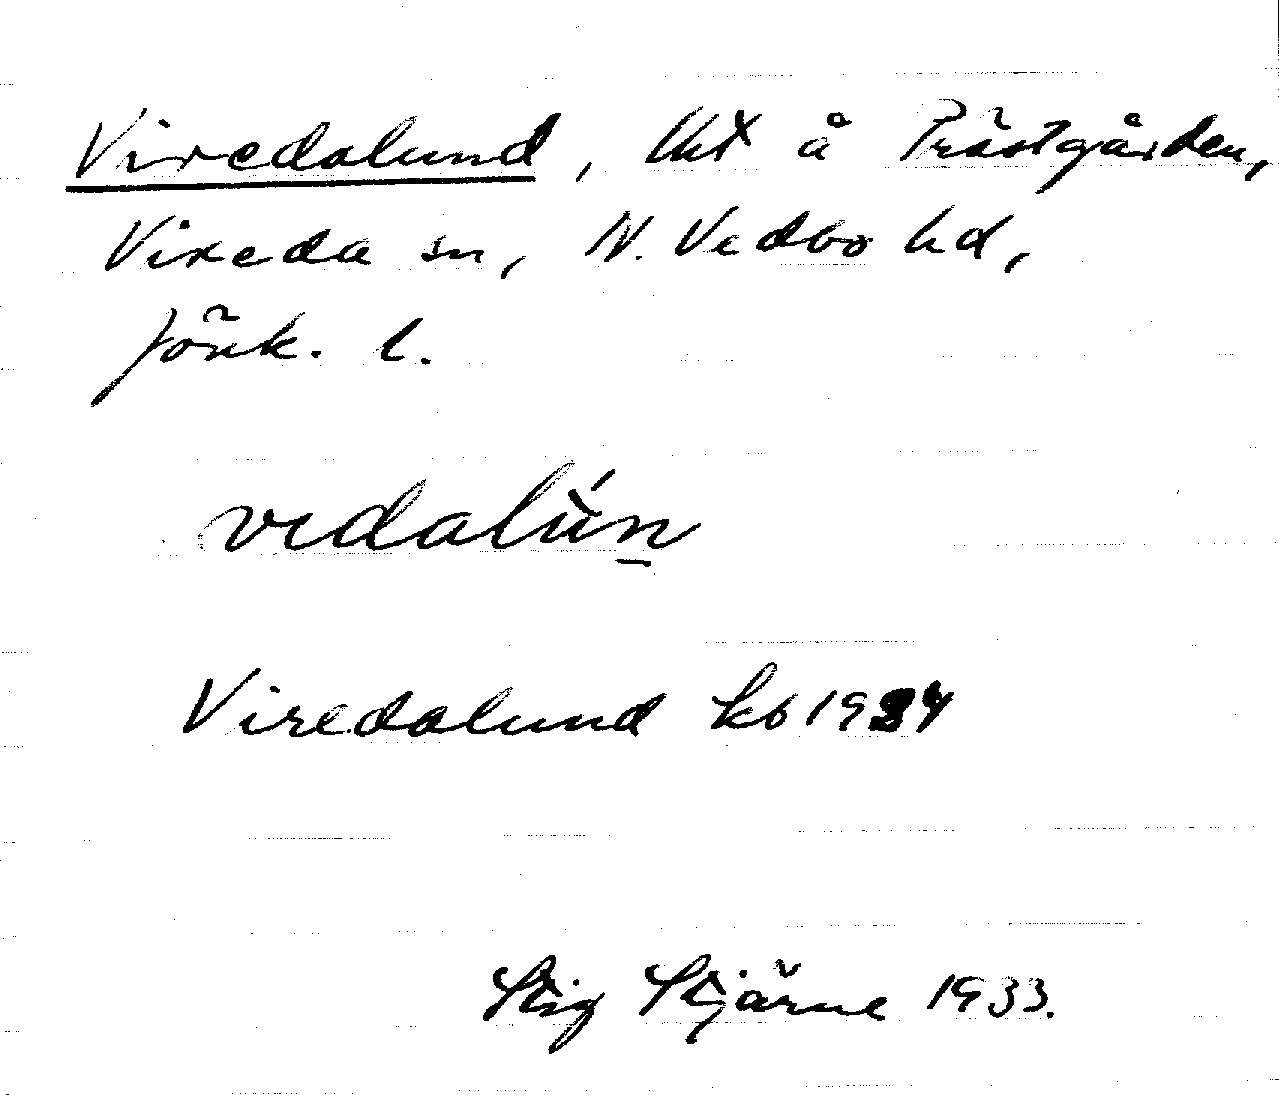 Viredalund, Utx å Prästgården,
Vireda sn, N. Vedbo hd,
Jönk. l.
vedalún
Viredalund kb 1934
Stig Stjärne 1933.